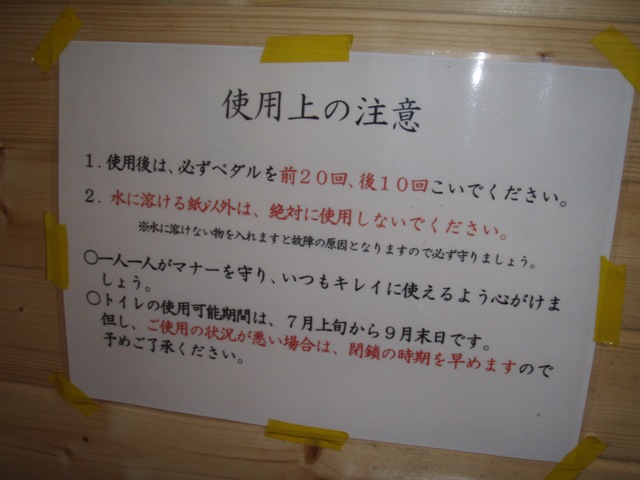 使用上の注意
1. 使用後は、必ずペダルを前20回、後10回こいでください。
2. 水に溶ける紙以外は、絶対に使用しないでください。
※水に溶けない物を入れますと故障の原因となりますので必ず守りましょう。
○一人一人がマナーを守り、いつもキレイに使えるよう心がけま
しょう。
○トイレの使用可能期間は、7月上旬から9月末日です。
但し、ご使用の状況が悪い場合は、閉鎖の時期を早めますので
予めご了承ください。